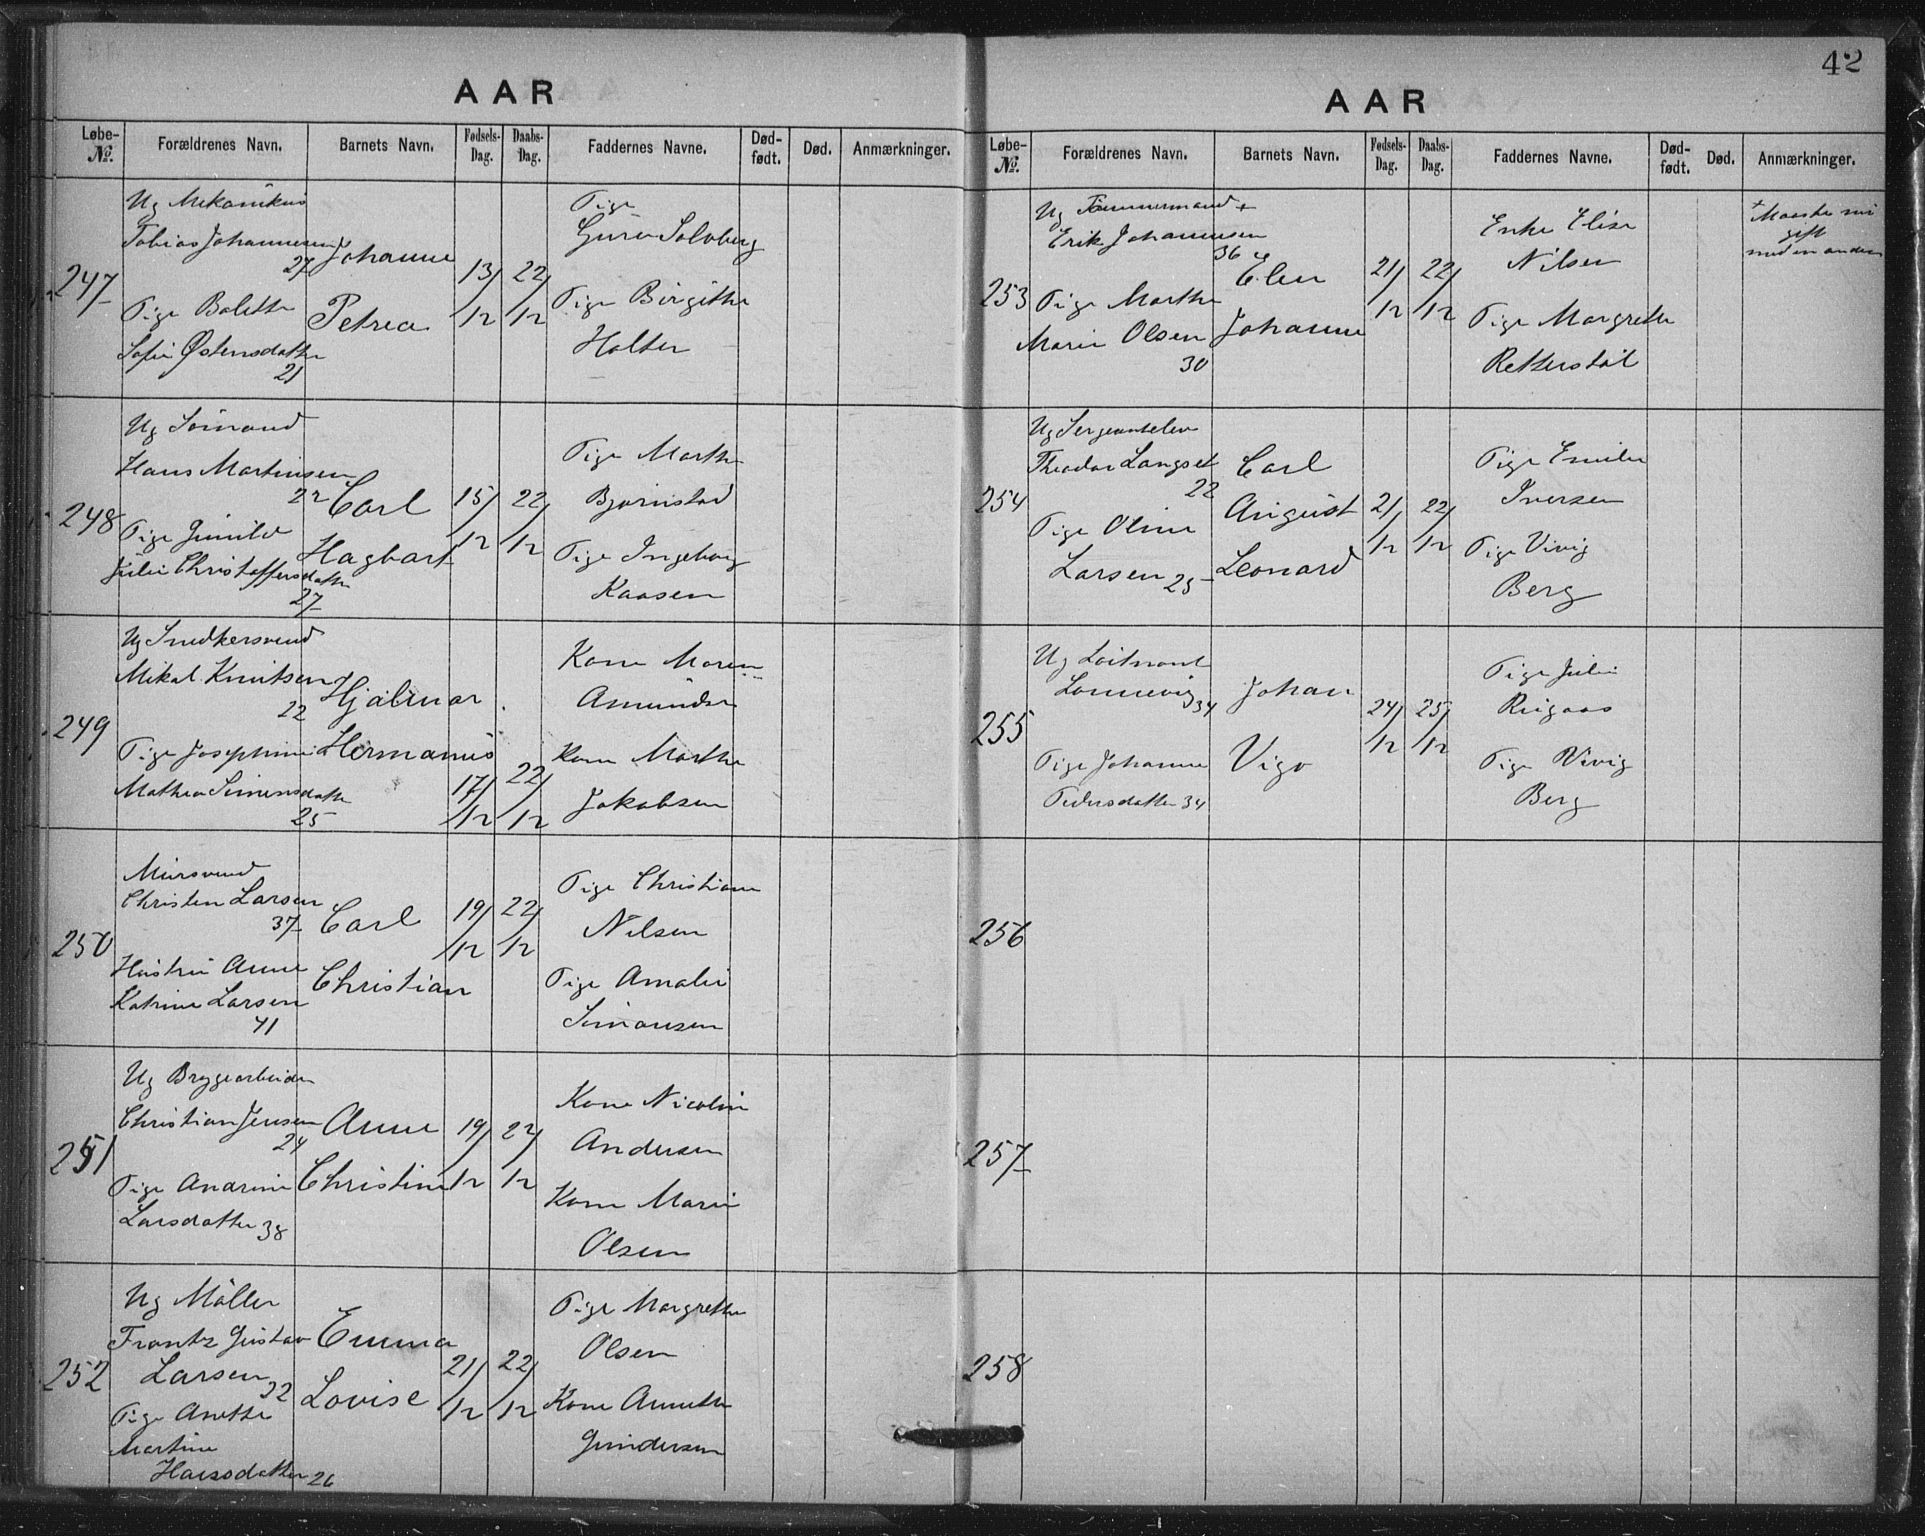 AAR
Løbe-No.
Forældrenes Navn.
Barnets Navn.
Fødsels-Dag.
Daabs-Dag.
Faddernes Navne.
Død-født.
Død.
Anmærkninger.
247
Ug Mekanikus
Tobias Johannesen
27
Pige Bolette
Sofie Østensdatter
21
Johanne
Petrea
13/12
22/12
Pige
Guro Solberg
Pige Birgithe
Holter
248
Ug Sömand
Hans Martinsen
22
Pige Gunild
Julie Christoffersdatter
27
Carl
Hagbart
15/12
22/12
Pige Marthe
Bjørnstad
Pige Ingeborg
Kaasen
249
Ug Snedkersvend
Mikal Knutsen
22
Pige Josephine
Mathea Simensdatter
25
Hjalmar
Hermanus
17/12
22/12
Kone Maren
Amundsen
Kone Marthe
Jakobsen
250
Mursvend
Christen Larsen
37
Hustru Anne
Katrine Larsen
41
Carl
Christian
19/12
22/12
Pige Christiane
Nilsen
Pige Amalie
Simonsen
251
Ug Bryggearbeider
Christian Jensen
24
Pige Andrine
Larsdatter 38
Anne
Christine
19/12
22/12
Kone Nicoline
Andersen
Kone Marie
Olsen
252
Ug Möller
Frantz Gustav
Larsen
22
Pige Anette
Martine
Hansdatter 26
Emma
Lovise
21/12
22/12
Pige Margrethe
Olsen
Kone Annette
Gundersen
42
AAR
Løbe-No.
Forældrenes Navn.
Barnets Navn.
Fødsels-Dag.
Daabs-Dag.
Faddernes Navne.
Død-født.
Død.
Anmærkninger.
253
Ug Tømmermand +
Erik Johannesen
36
Pige Marthe
Marie Olsen
30
Elen
Johanne
21/12
22/12
Enke Elise
Nilsen
Pige Margrethe
Retterstöl
+ Maaske nu
gift
med en anden
254
Ug Sergeantelev
Theodor Langset
22
Pige Oline
Larsen 25
Carl
August
Leonard
21/12
22/12
Pige Emilie
Iversen
Pige Vivig
Berg
255
Ug Loitnant
Lonnevig 34
Pige Johanne
Pedersdatter 34
Johan
Vigo
24/12
25/12
Pige Julie
Rugaas
Pige Vivig
Berg
256
257
258